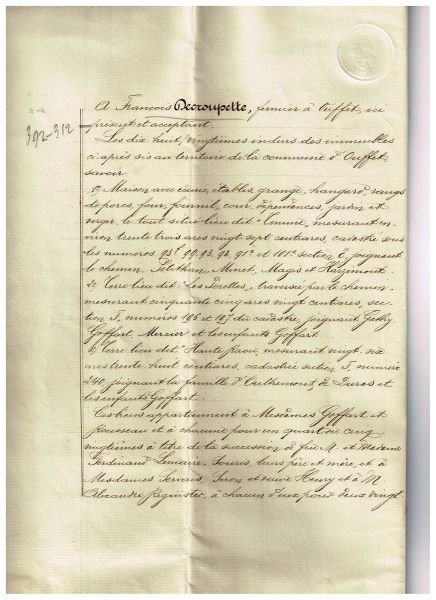 392-312
A François Decroupette, fermier à Ouffet, ici
présent et acceptant.
Les dix huit vingtièmes indivis des immeubles
ci après sis au territoire de la commune d'Ouffet
savoir
1) Maison avec écurie, étables, grange, hangard, rangs
de porcs, four, fournil, cour, dépendances, jardin et
verger, le tout situé lieu dit mesurant en-
viron trente trois ares vingt sept centiares, cadastré sous
les numéros 98 99, 95, 94, 91 et 101 section E, joignant
le chemin, Minet, Magis et
2) Terre lieu dit Les traversée par le chemin
mesurant cinquante cinq ares vingt centiares, sec-
tion F, numéros 196 et 197 du cadastre, joignant
Goffart, Mercier et les enfants Goffart.
3) Terre lieu dit Haute mesurant vingt six
ares trente huit centiares, cadastrée section F, numéro
240, joignant la famille d'Oultremont, et
les enfants Goffart.
Ces biens appartiennent à Mesdames Goffart et
Rousseau et à chacune pour un quart ou cinq
vingtièmes à titre de la succession de feu M. et Madame
Ferdinand Lemaire. leurs père et mère, et à
Mesdames Servais, et veuve Henry et à M.
Alexandre à chacun d'eux pour deux vingt